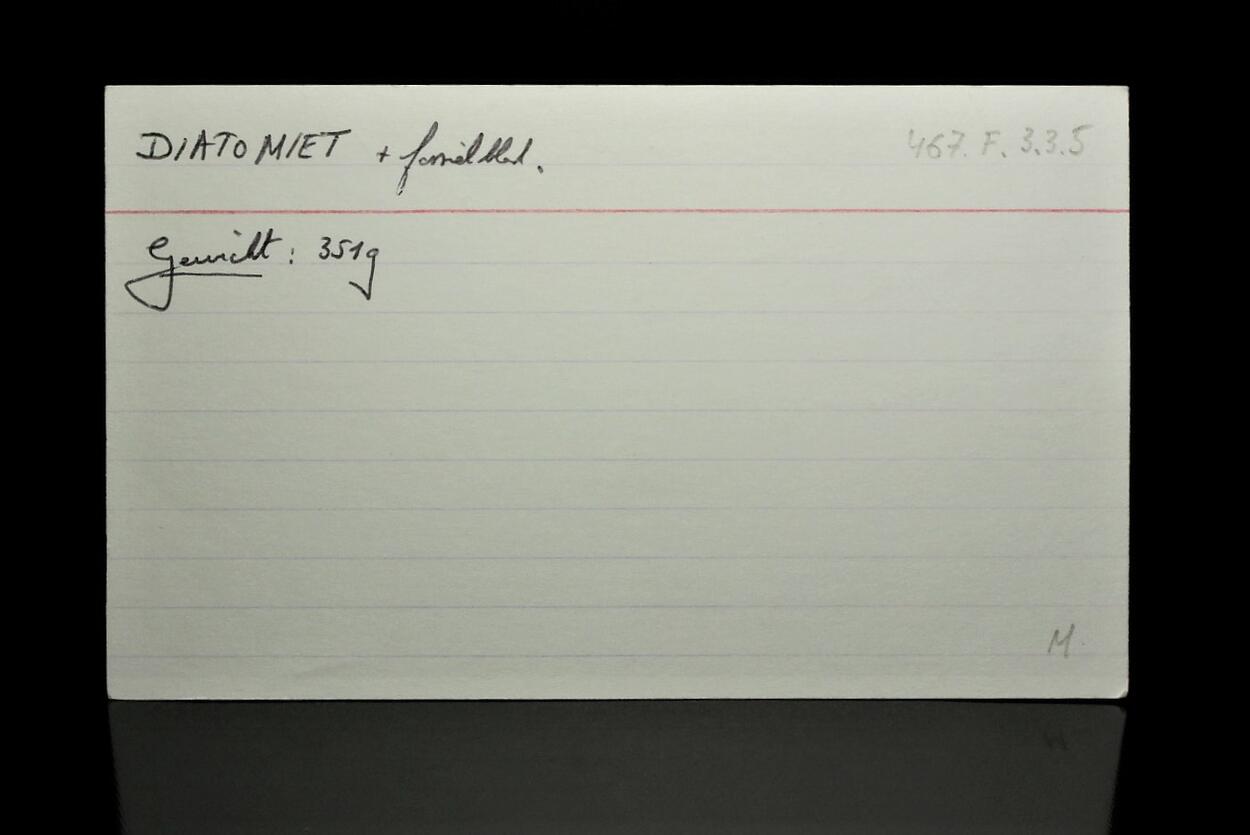 DIATOMIET + fossiel blad.
467. F. 3.3.5
Gewicht : 351g
M.